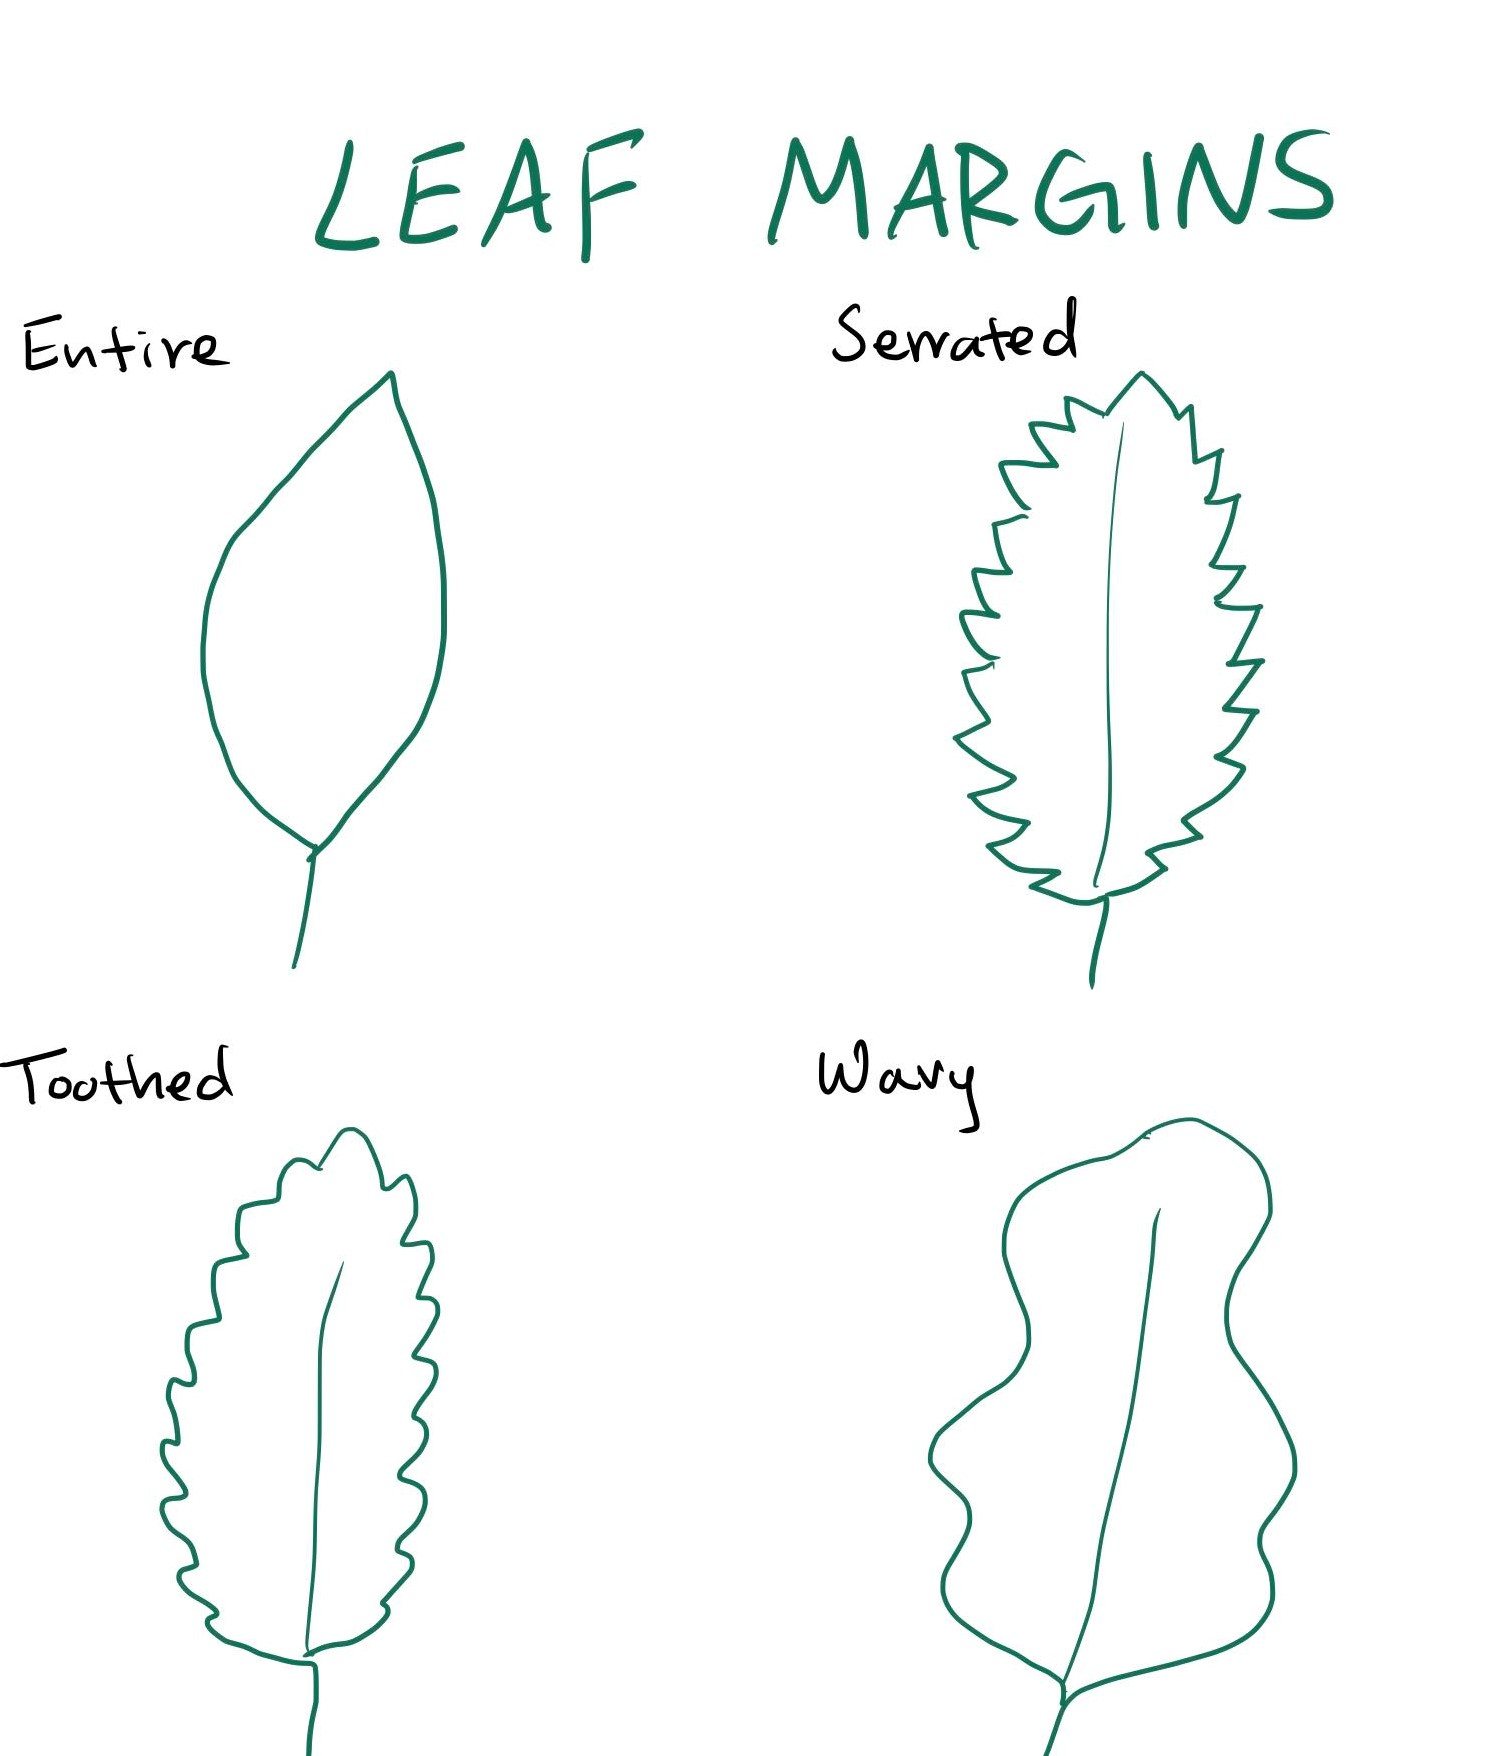 LEAF MARGINS
Entire
Serrated
Toothed
Wavy